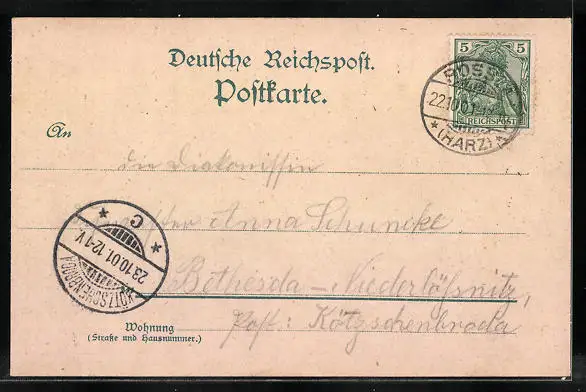 Deutsche Reichspost.
Postkarte.
5 5
REICHSPOST
22.10.01
* (HARZ) *
An
die Diakonissin
Anna Schuncke
C
23.10.01.12-1V.
KÖTZSCHENBRODA
Bethesda – Niederlößnitz,
Post: Kötzschenbroda
Wohnung
(Straße und Hausnummer.)